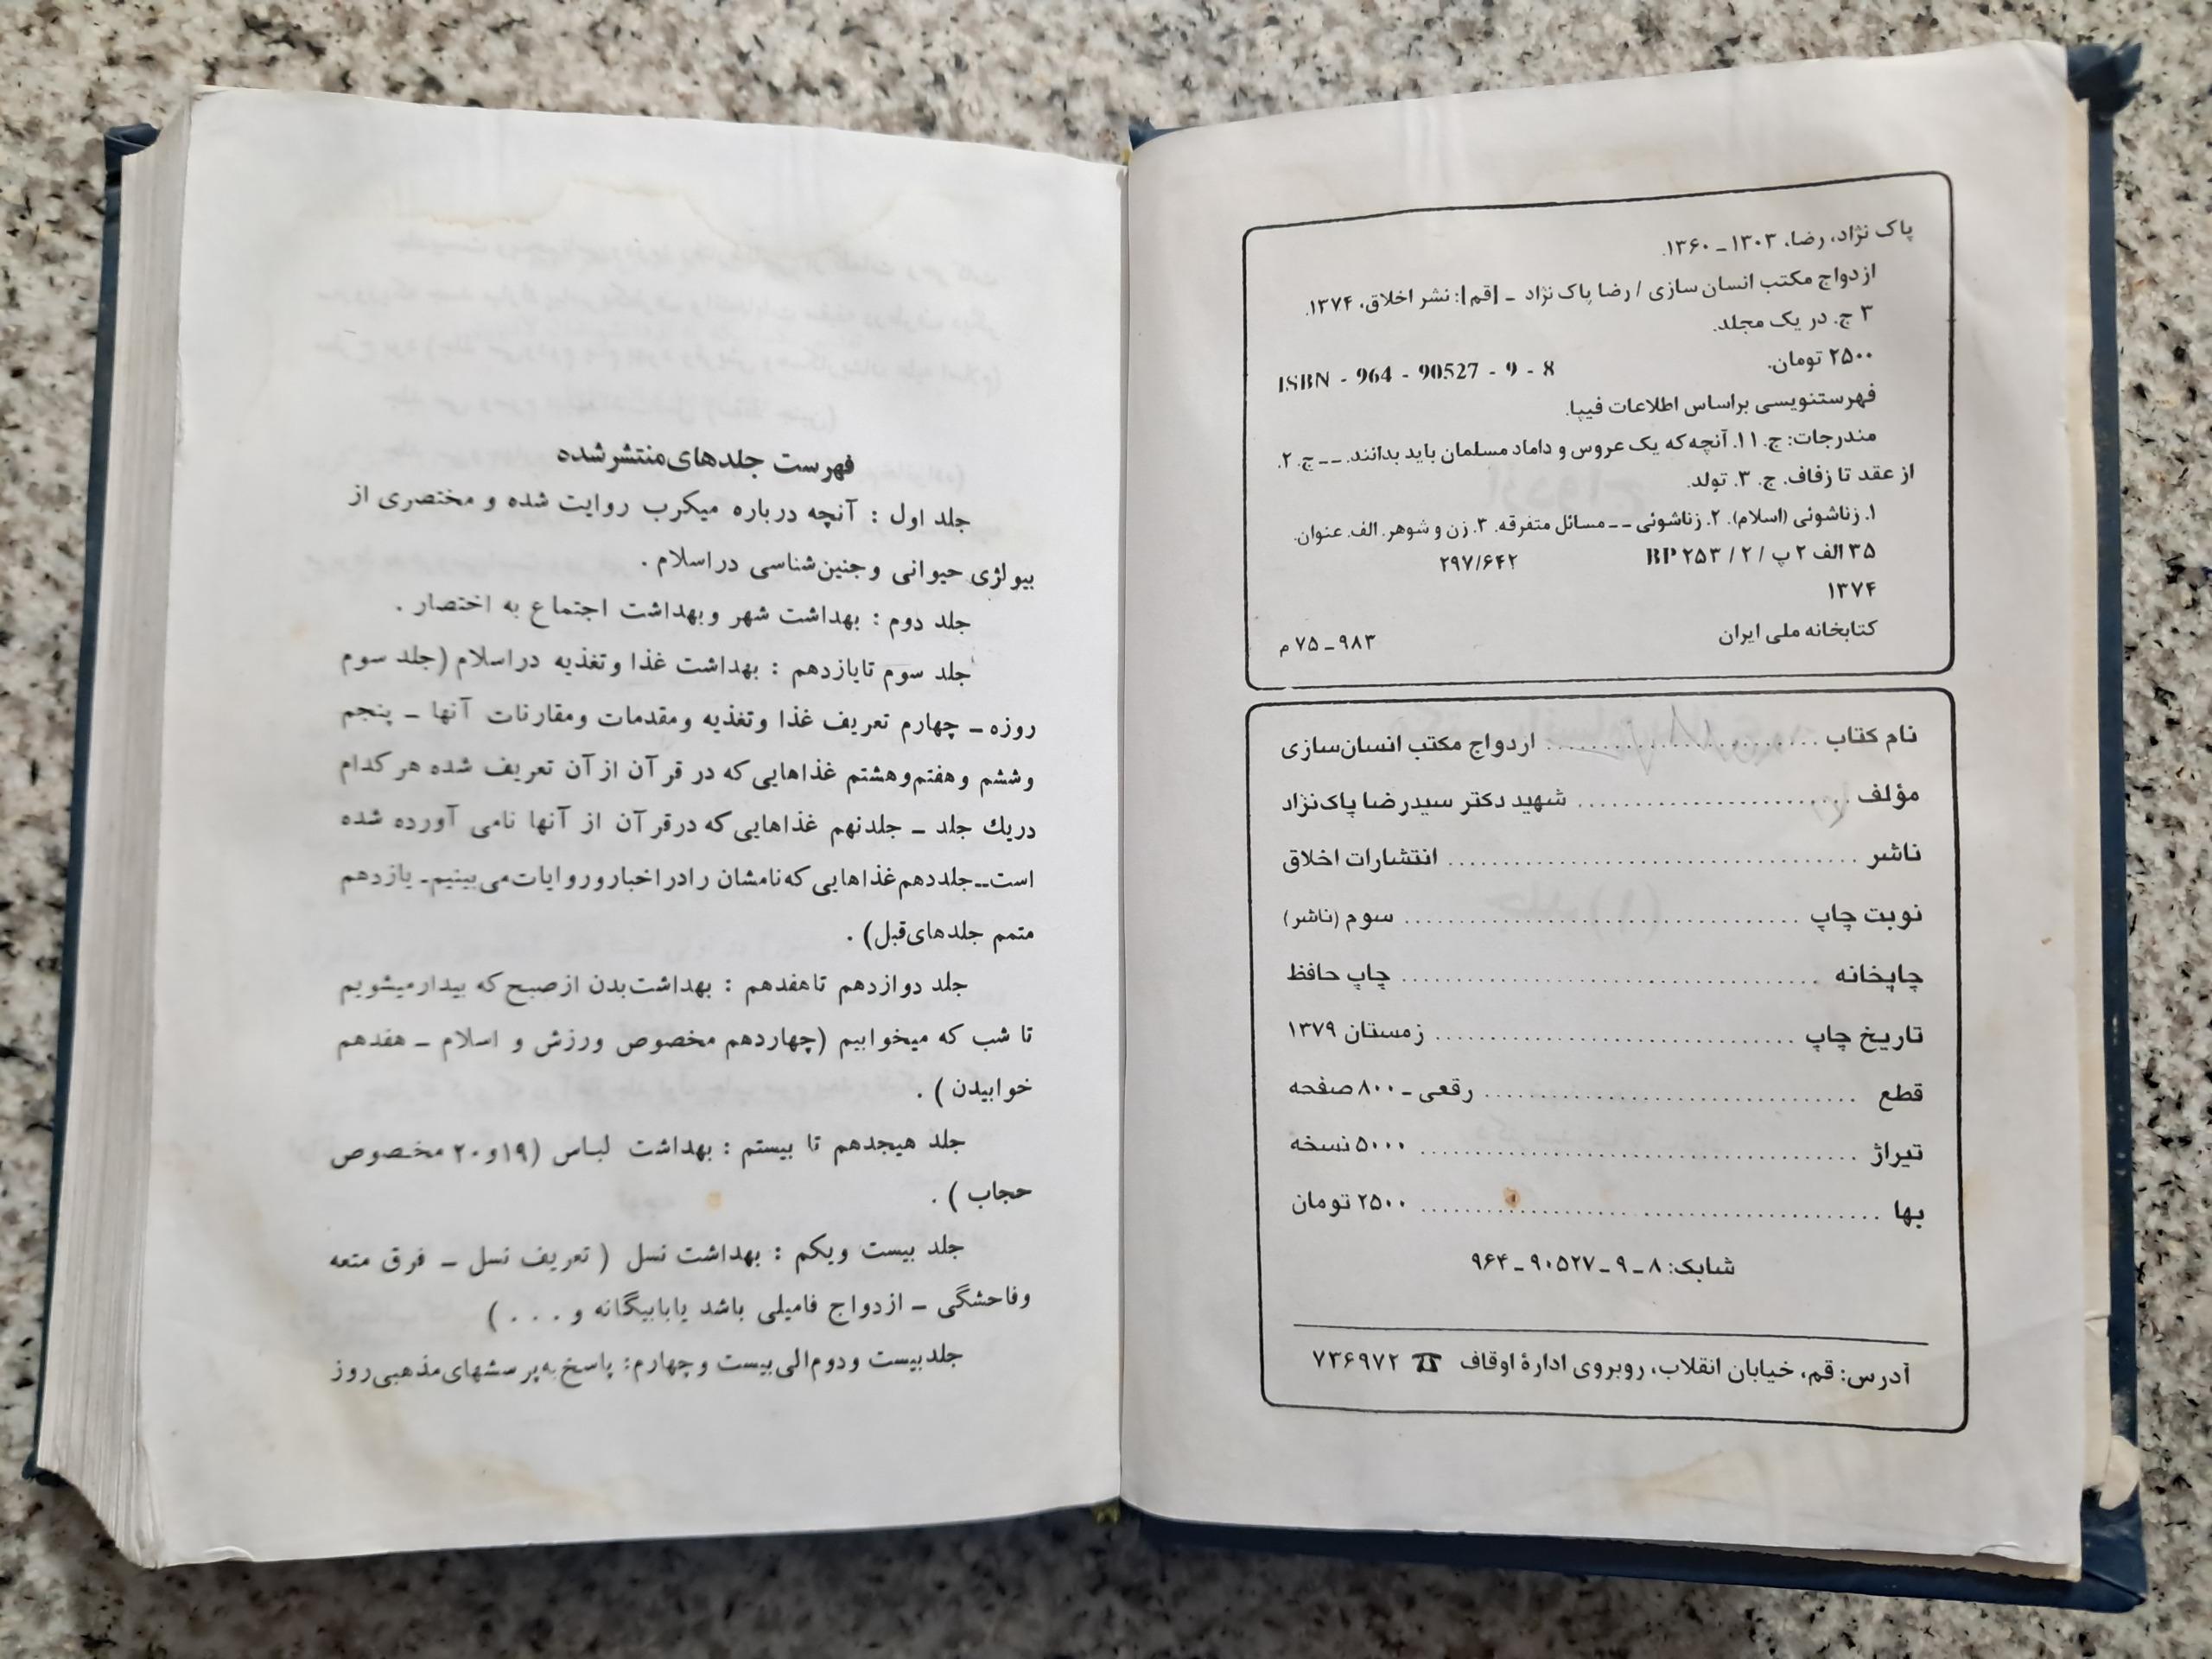 پاک نژاد، رضا، ۱۳۰۳ ـ ۱۳۶۰.
ازدواج مکتب انسان سازی / رضا پاک نژاد ـ [قم]: نشر اخلاق، ۱۳۷۴.
۳ ج. در یک مجلد.
۲۵۰۰ تومان. ISBN - 964 - 90527 - 9 - 8
فهرستنویسی براساس اطلاعات فیپا.
مندرجات: ج. ۱۱. آنچه که یک عروس و داماد مسلمان باید بدانند. ــ ج. ۲.
از عقد تا زفاف. ج. ۳. تولد.
۱. زناشوئی (اسلام). ۲. زناشوئی ــ مسائل متفرقه. ۳. زن و شوهر. الف. عنوان.
۳۵ الف ۲ پ / ۲ / ۲۵۳ BP ۲۹۷/۶۴۲
۱۳۷۴
کتابخانه ملی ایران ۹۸۳ ـ ۷۵ م
نام کتاب ........................ اردواج مکتب انسان‌سازی
مؤلف ........................ شهید دکتر سیدرضا پاک‌نژاد
ناشر ........................ انتشارات اخلاق
نوبت چاپ ........................ سوم (ناشر)
چاپخانه ........................ چاپ حافظ
تاریخ چاپ ........................ زمستان ۱۳۷۹
قطع ........................ رقعی ـ ۸۰۰ صفحه
تیراژ ........................ ۵۰۰۰ نسخه
بها ........................ ۲۵۰۰ تومان
شابک: ۸ ـ ۹ ـ ۹۰۵۲۷ ـ ۹۶۴
آدرس: قم، خیابان انقلاب، روبروی ادارهٔ اوقاف ☎ ۷۳۶۹۷۲
فهرست جلدهای منتشرشده
جلد اول : آنچه درباره میکرب روایت شده و مختصری از
بیولژی حیوانی و جنین‌شناسی دراسلام .
جلد دوم : بهداشت شهر وبهداشت اجتماع به اختصار .
جلد سوم تایازدهم : بهداشت غذا وتغذیه دراسلام (جلد سوم
روزه ـ چهارم تعریف غذا وتغذیه ومقدمات ومقارنات آنها ـ پنجم
وششم وهفتم‌وهشتم غذاهایی که در قرآن ازآن تعریف شده هر کدام
دریك جلد ـ جلدنهم غذاهایی که درقرآن از آنها نامی آورده شده
است ـ جلددهم غذاهایی که نامشان رادر اخبار وروایات می‌بینیم ـ یازدهم
متمم جلدهای قبل) .
جلد دوازدهم تاهفدهم : بهداشت بدن ازصبح که بیدارمیشویم
تا شب که میخوابیم (چهاردهم مخصوص ورزش و اسلام ـ هفدهم
خوابیدن ) .
جلد هیجدهم تا بیستم : بهداشت لباس (۱۹و۲۰ مخصوص
حجاب ) .
جلد بیست ویکم : بهداشت نسل ( تعریف نسل ـ فرق متعه
وفاحشگی ـ ازدواج فامیلی باشد یابابیگانه و . . . )
جلدبیست ودوم‌الی‌بیست وچهارم: پاسخ به‌پرسشهای‌مذهبی‌روز